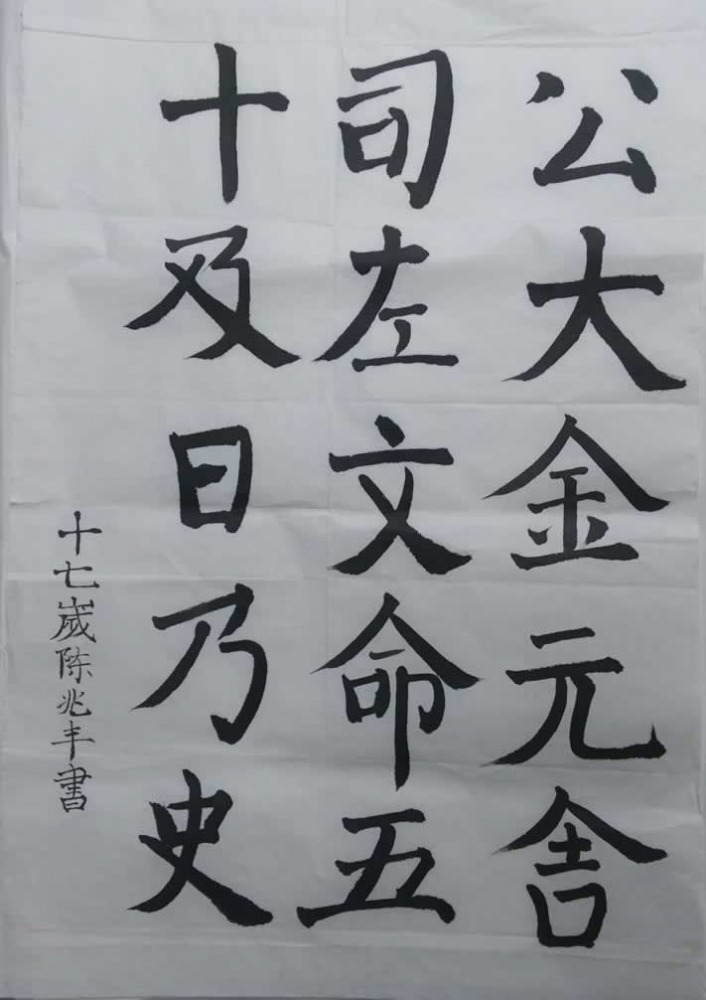 公大金元舍
司左文命五
十及日乃史
十七歲陈兆丰書